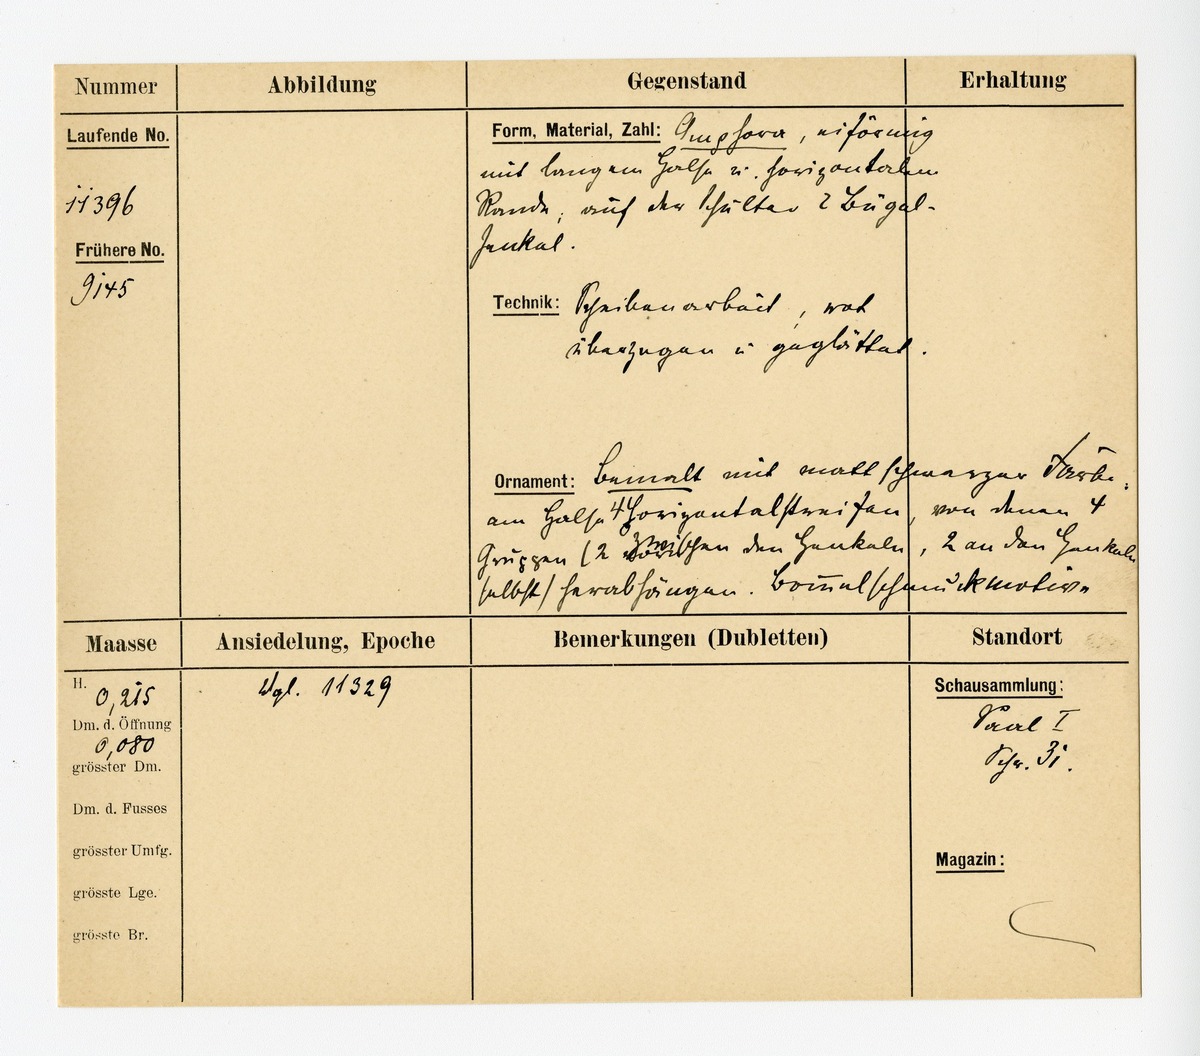 Nummer
Abbildung
Gegenstand
Erhaltung
Laufende No.
11396
Frühere No.
9145
Form, Material, Zahl: Amphora, eiförmig
mit langem Halse u. horizontalem
Rande; auf der Schulter 2 Bügel-
henkel.
Technik: Scheibenarbeit, rot
überzogen u geglättet.
Ornament: Bemalt mit mattschwarzer Farbe:
am Halse 4 Horizontalstreifen, von denen 4
Gruppen (2 zwischen den Henkeln, 2 an den Henkeln
selbst) herabhängen.
Maasse
Ansiedelung, Epoche
Bemerkungen (Dubletten)
Standort
H. 0,215
Dm. d. Öffnung
0,080
grösster Dm.
Dm. d. Fusses
grösster Umfg.
grösste Lge.
grösste Br.
Vgl. 11329
Schausammlung:
Saal I
Schr. 31.
Magazin: